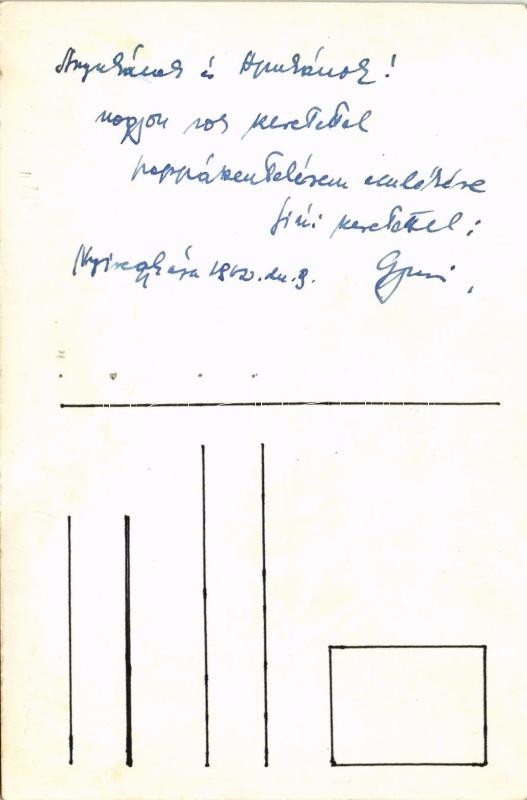 Anyukának és Apukának!
nagyon sok szeretettel
pappászentelésem emlékére
fiúi szeretettel:
Nyíregyháza 1962. 9. Gyuri